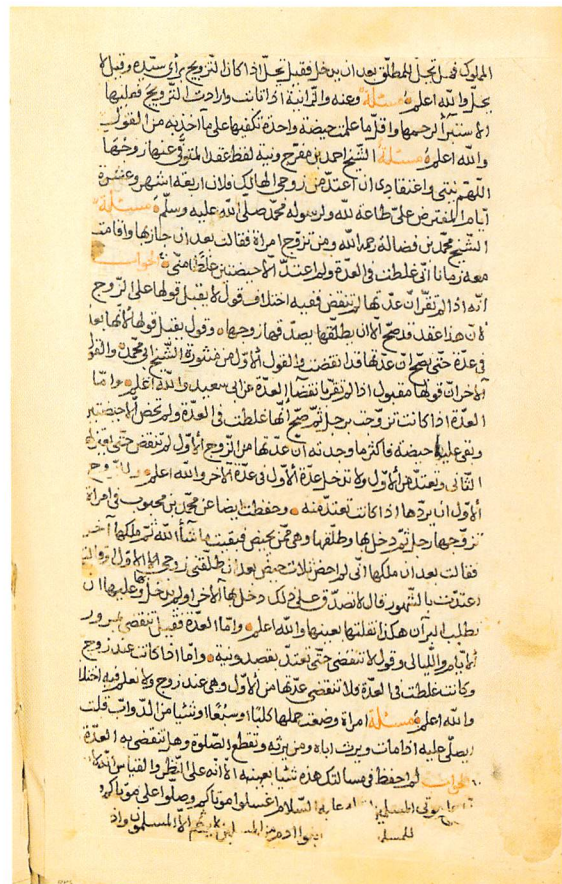 المملوك فهل تحل للمطلق بعد ان يدخل فقيل تحل اذا كان التزويج برأي سيده وقيل لا
يحل والله اعلم مسئلة وعنه والزانية اذا تابت وارادت التزويج فعليها
الاستبرأ لرحمها واقل ما علمت حيضة واحدة تكفيها على ما اخذ به من القول
والله اعلم مسئلة الشيخ احمد بن مفرج ونية لفظ عقد المتوفى عنها زوجها
اللهم نيتي واعتقادي ان أعتد من زوجي الهالك فلان اربعة اشهر وعشرة
أيام المفترض علي طاعة لله ولرسوله محمد صلى الله عليه وسلم مسئلة
الشيخ محمد بن فضالة رحمه الله ومن تزوج امراة فقالت بعد ان جاز بها واقامت
معه زمانا اني غلطت في العدة ولم اعتد الا حيضتين غلطا مني الجواب
انه اذا لم تقر ان عدتها لم تنقض ففيه اختلاف قول لا يقبل قولها على الزوج
لان هذا عقد قد صح الا ان يطلقها يصدقها زوجها وقول يقبل قولها لانها
في عدة حتى يصح ان عدتها قد انقضت والقول الأول من منثورة الشيخ ابي محمد والقول
الآخر ان قولها مقبول اذا لم تقر بانقضآ العدة عن ابي سعيد والله اعلم واما
العدة اذا كانت تزوجت برجل ثم صح انها غلطت في العدة ولم تحض الا حيضتين
وبقي عليها حيضة فاكثر ما وجدته ان عدتها من الزوج الأول لم تنقض حتى يعتزلها
الثاني وتعتد من الأول ولا تدخل عدة الأول في عدة الآخر والله اعلم وللزوج
الأول ان يردها اذا كانت تعتد منه وحفظت ايضا عن محمد بن محبوب في امراة
تزوجها رجل ثم دخل بها وطلقها وهي ممن يحيض فبقيت ما شآ الله ثم ملكها آخر
فقالت بعد ان ملكها اني لم احض ثلاث حيض بعد ان طلقني زوجي الأول
اعتدت بالشهور قال لا تصدق على ذلك دخل بها الآخر او لم يدخل وعليها ان
تطلب البرآن هكذا نقلتها بعينها والله اعلم واما العدة فقيل تنقضي بمرور
الأيام والليالي وقول لا تنقضي حتى تعتد بقصد ونية واما اذا كانت عند زوج
وكانت غلطت في العدة فلا تنقضي عدتها من الأول وهي عند زوج ولا نعلم فيه اختلافا
والله اعلم مسئلة امراة وضعت حملها كلبا او سبعا او شيئا من الدواب قلت
ايصلى عليه اذا مات ويرث اباه ومن يرثه وتقطع الصلوة وهل تنقضي به العدة
الجواب لم احفظ في مسالتك هذه شئا بعينه الا انه على النظر والقياس
موتى المسلمين عليه السلام اغسلوا موتاكم وصلوا على موتاكم
للمسلمين الا المسلمون واذ